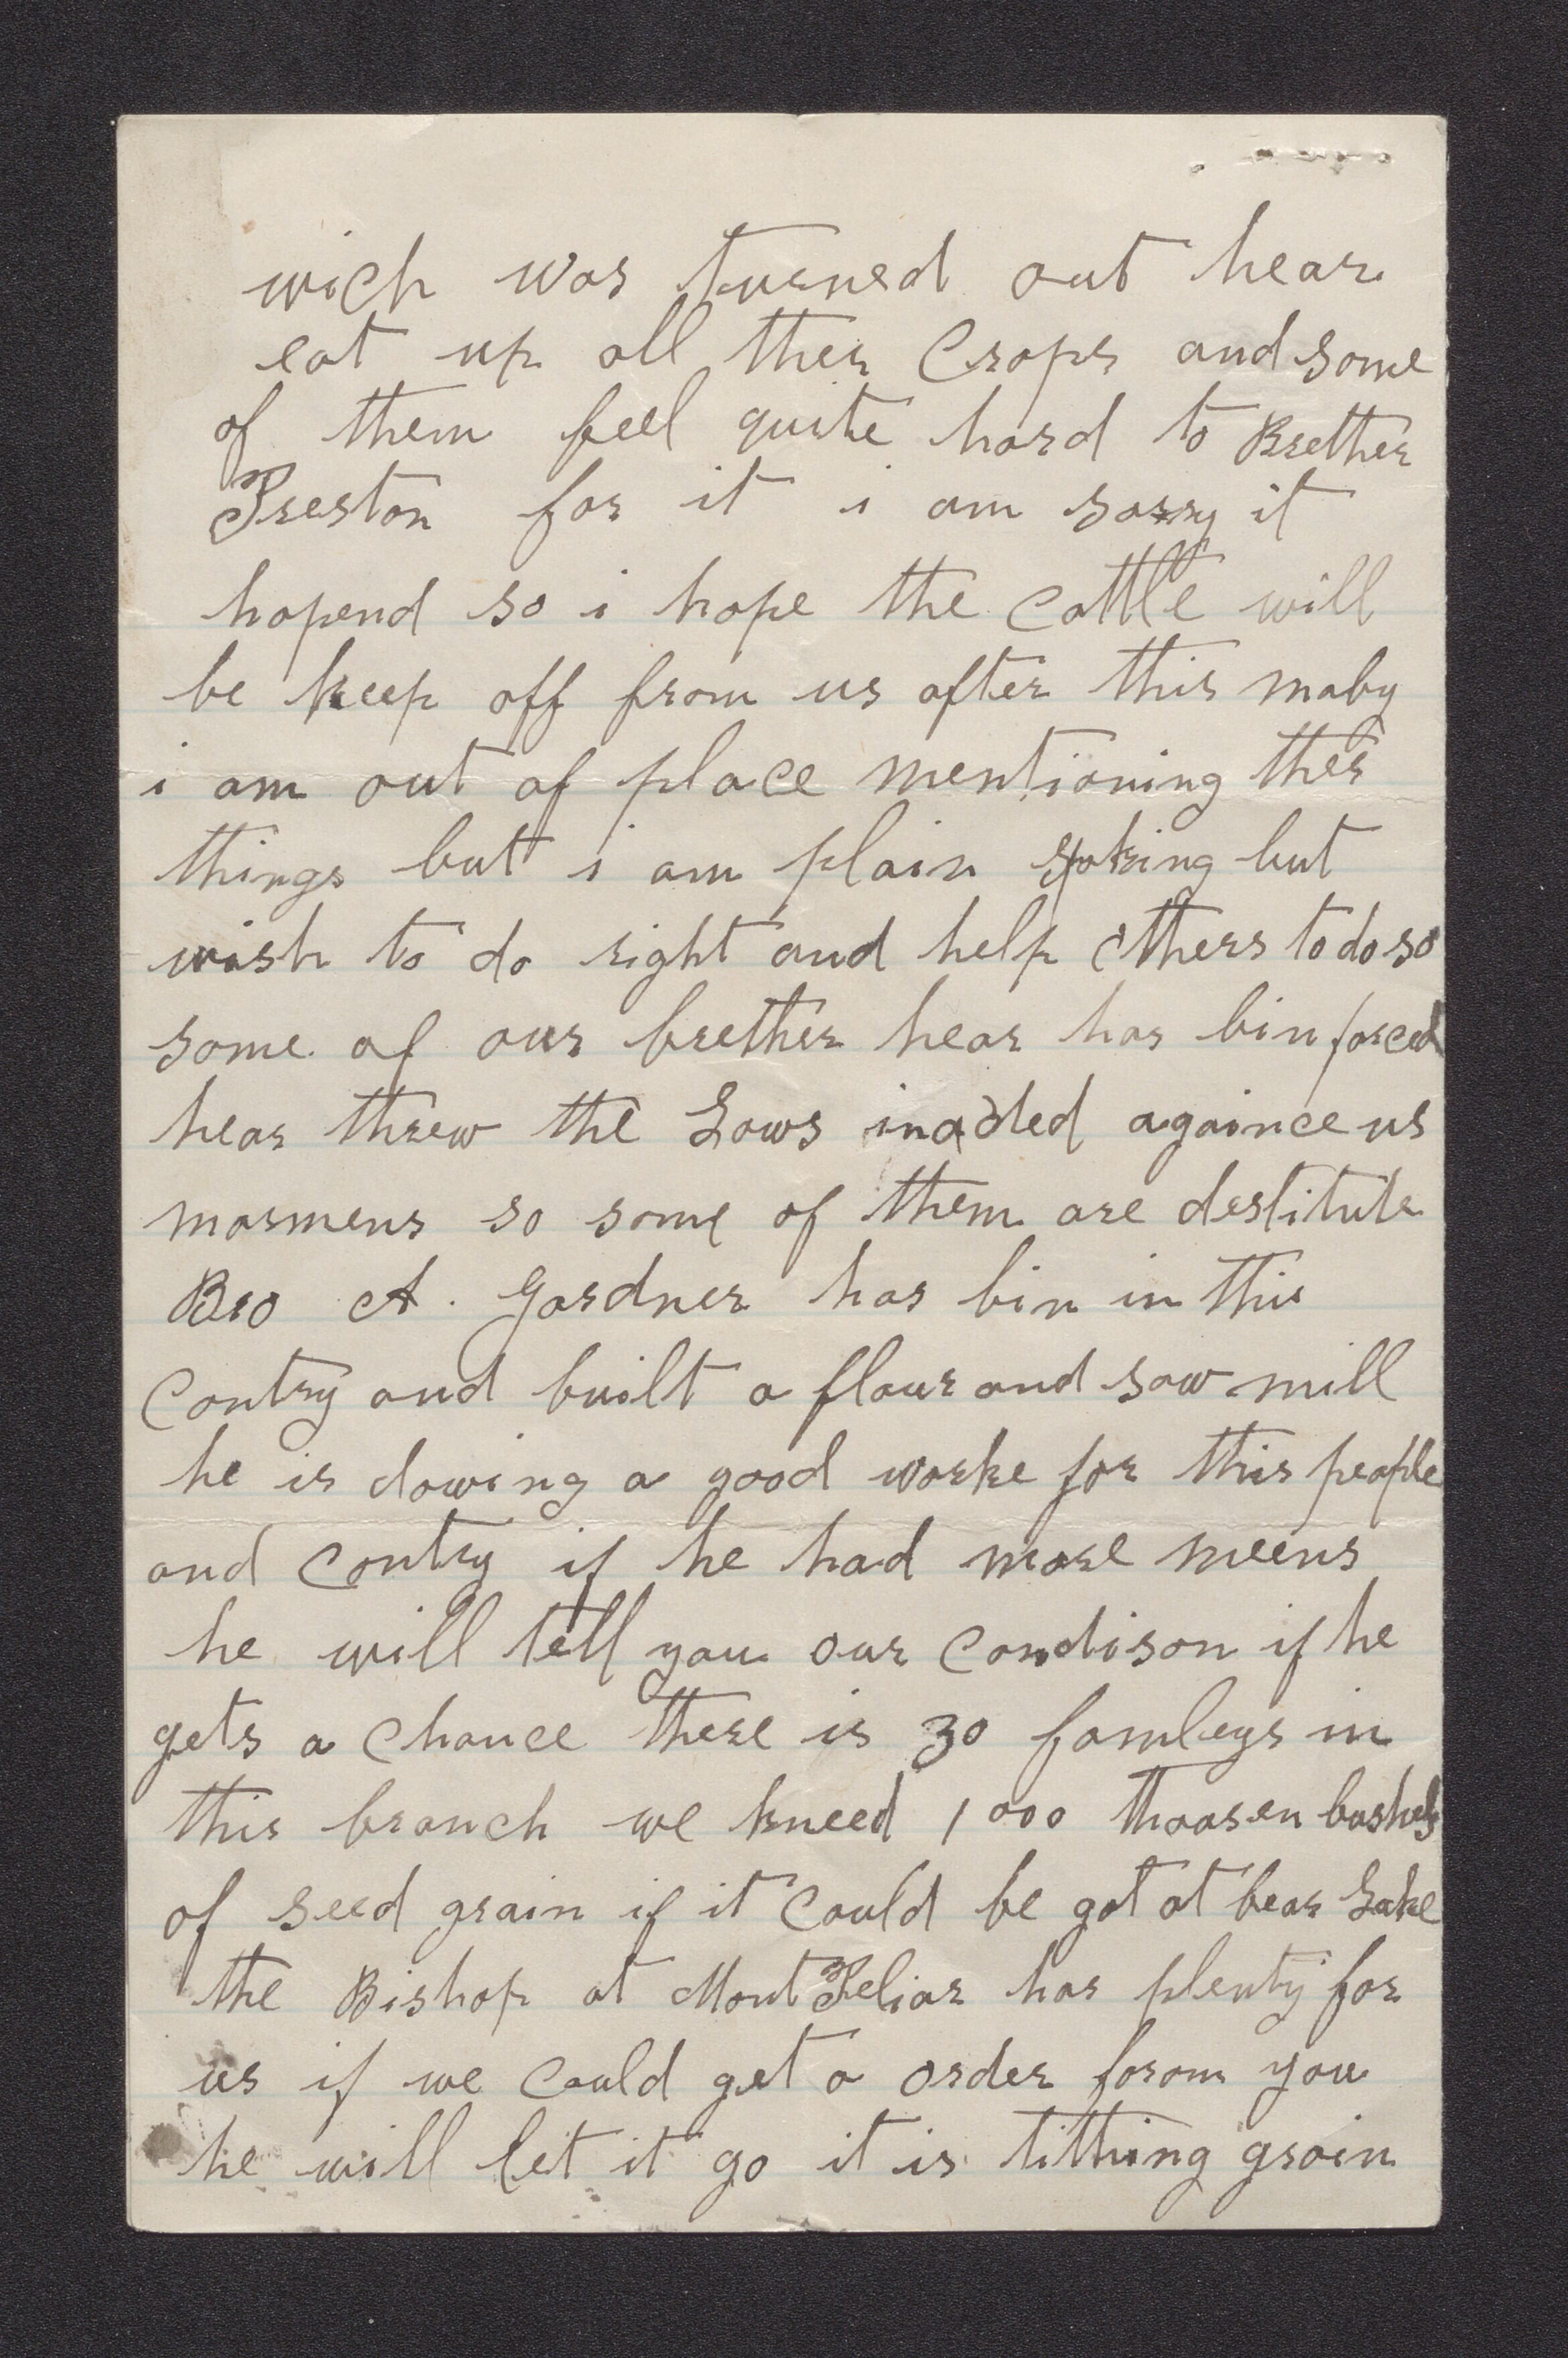 wich was turned out hear
eat up all ther Crops and some
of them feel quite hard to Brether
Preston for it i am sorry it
hapend so i hope the cattle will
be keep off from us after this maby
i am out of place mentioning thes
things but i am plain spoking but
wish to do right and help others to do so
some of our brether hear has bin forced
hear threw the Laws inacted againce us
mormens so some of them are destitute
Bro A. Gardner has bin in this
Contry and built a flour and saw mill
he is dowing a good worke for this people
and Contry if he had more meens
he will tell you our Condison if he
gets a Chance there is 30 famleys in
this branch we kneed 1000 thousen bushels
of seed grain if it Could be got at bear Lake
the Bishop at Mont Peliar has plenty for
us if we Could get a order forom you
he will let it go it is tithing grain